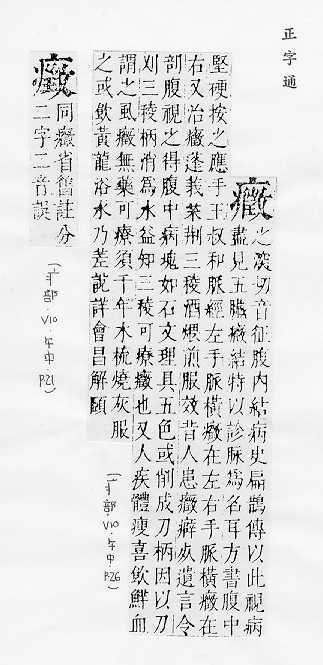 正字通
癥
之淡切音征腹内結病史扁鵲傳以此視病
盡見五臟癥結特以診脉爲名耳方書腹中
堅硬按之應手王叔和脈經左手脈橫癥在左右手脈橫癥在
右又治癥蓬莪茱荆三稜酒煨煎服效昔人患癥癖死遺言令
剖腹視之得腹中病塊如石文理具五色或削成刀柄因以刀
刈三稜柄消爲水益知三稜可療癥也又人疾體瘦喜飮鮮血
謂之虱癥無藥可療須千年木梳燒灰服
之或飮黃龍浴水乃差說詳會昌解頤
(疒部·V10·午中 P26)
同癥省舊註分
二字二音誤
(疒部·V10·午中 P21)